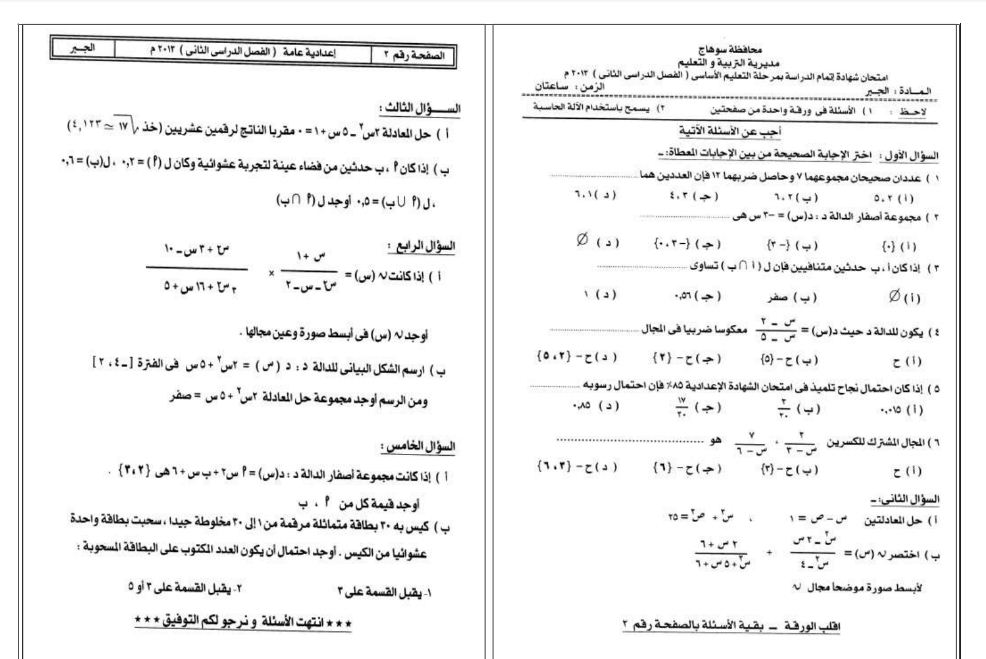 محافظة سوهاج
مديرية التربية و التعليم
امتحان شهادة إتمام الدراسة بمرحلة التعليم الأساسى ( الفصل الدراسى الثانى ) ٢٠١٣ م
المـادة : الجبر الزمن : ساعتان
لاحـظ : ١) الأسئلة فى ورقة واحدة من صفحتين ٢) يسمح باستخدام الآلة الحاسبة
أجب عن الأسئلة الآتية
السؤال الأول : اختر الإجابة الصحيحة من بين الإجابات المعطاة:ـ
١ ) عددان صحيحان مجموعهما ٧ وحاصل ضربهما ١٢ فإن العددين هما ............
( أ ) ٥ ، ٢ ( ب ) ٦ ، ٢ ( جـ ) ٤ ، ٣ ( د ) ٦ ، ١
٢ ) مجموعة أصفار الدالة د : د(س) = –٣ س هى ............
( أ ) {٠} ( ب ) {–٣} ( جـ ) {–٣ ، ٠} ( د ) ∅
٣ ) إذا كان أ ، ب حدثين متنافيين فإن ل ( أ ∩ ب ) تساوى ............
( أ ) ∅ ( ب ) صفر ( جـ ) ٠,٥٦ ( د ) ١
٤ ) يكون للدالة د حيث د(س) = (س – ٢)/(س – ٥) معكوسا ضربيا فى المجال ............
( أ ) ح ( ب ) ح – {٥} ( جـ ) ح – {٢} ( د ) ح – {٢ ، ٥}
٥ ) إذا كان احتمال نجاح تلميذ فى امتحان الشهادة الإعدادية ٨٥٪ فإن احتمال رسوبه ............
( أ ) ٠,٠١٥ ( ب ) ٣/٢٠ ( جـ ) ١٧/٢٠ ( د ) ٠,٨٥
٦ ) المجال المشترك للكسرين ٢/(س – ٣) ، ٧/(س – ٦) هو ............
( أ ) ح ( ب ) ح – {٣} ( جـ ) ح – {٦} ( د ) ح – {٣ ، ٦}
السؤال الثانى :ـ
أ ) حل المعادلتين س – ص = ١ ، س٢ + ص٢ = ٢٥
ب ) اختصر ن (س) = (س٢ – ٢ س)/(س٢ – ٤) + (٢ س + ٦)/(س٢ + ٥ س + ٦)
لأبسط صورة موضحا مجال ن
اقلب الورقة ــ بقية الأسئلة بالصفحة رقم ٢
الصفحة رقم ٢ إعدادية عامة ( الفصل الدراسى الثانى ) ٢٠١٣ م الجبر
الســـؤال الثالث :
أ ) حل المعادلة ٢س٢ – ٥ س + ١ = ٠ مقربا الناتج لرقمين عشريين (خذ √١٧ ≃ ٤,١٢٣)
ب ) إذا كان أ ، ب حدثين من فضاء عينة لتجربة عشوائية وكان ل ( أ ) = ٠,٢ ، ل(ب) = ٠,٦
، ل ( أ ∪ ب) = ٠,٥ أوجد ل ( أ ∩ ب)
السؤال الرابع :
أ ) إذا كانت ن (س) = (س + ١)/(س٢ – س – ٢) × (س٢ + ٣ س – ١٠)/(٣س٢ + ١٦ س + ٥)
أوجد ن (س) فى أبسط صورة وعين مجالها .
ب ) ارسم الشكل البيانى للدالة د : د ( س ) = ٢س٢ + ٥ س فى الفترة [ – ٤ ، ٢ ]
ومن الرسم أوجد مجموعة حل المعادلة ٢س٢ + ٥ س = صفر
السؤال الخامس :
أ ) إذا كانت مجموعة أصفار الدالة د : د(س) = أ س٢ + ب س + ٦ هى {٢ ، ٣} .
أوجد قيمة كل من أ ، ب
ب ) كيس به ٣٠ بطاقة متماثلة مرقمة من ١ إلى ٣٠ مخلوطة جيدا ، سحبت بطاقة واحدة
عشوائيا من الكيس . أوجد احتمال أن يكون العدد المكتوب على البطاقة المسحوبة :
١- يقبل القسمة على ٣ ٢- يقبل القسمة على ٣ أو ٥
★★★ انتهت الأسئلة و نرجو لكم التوفيق ★★★